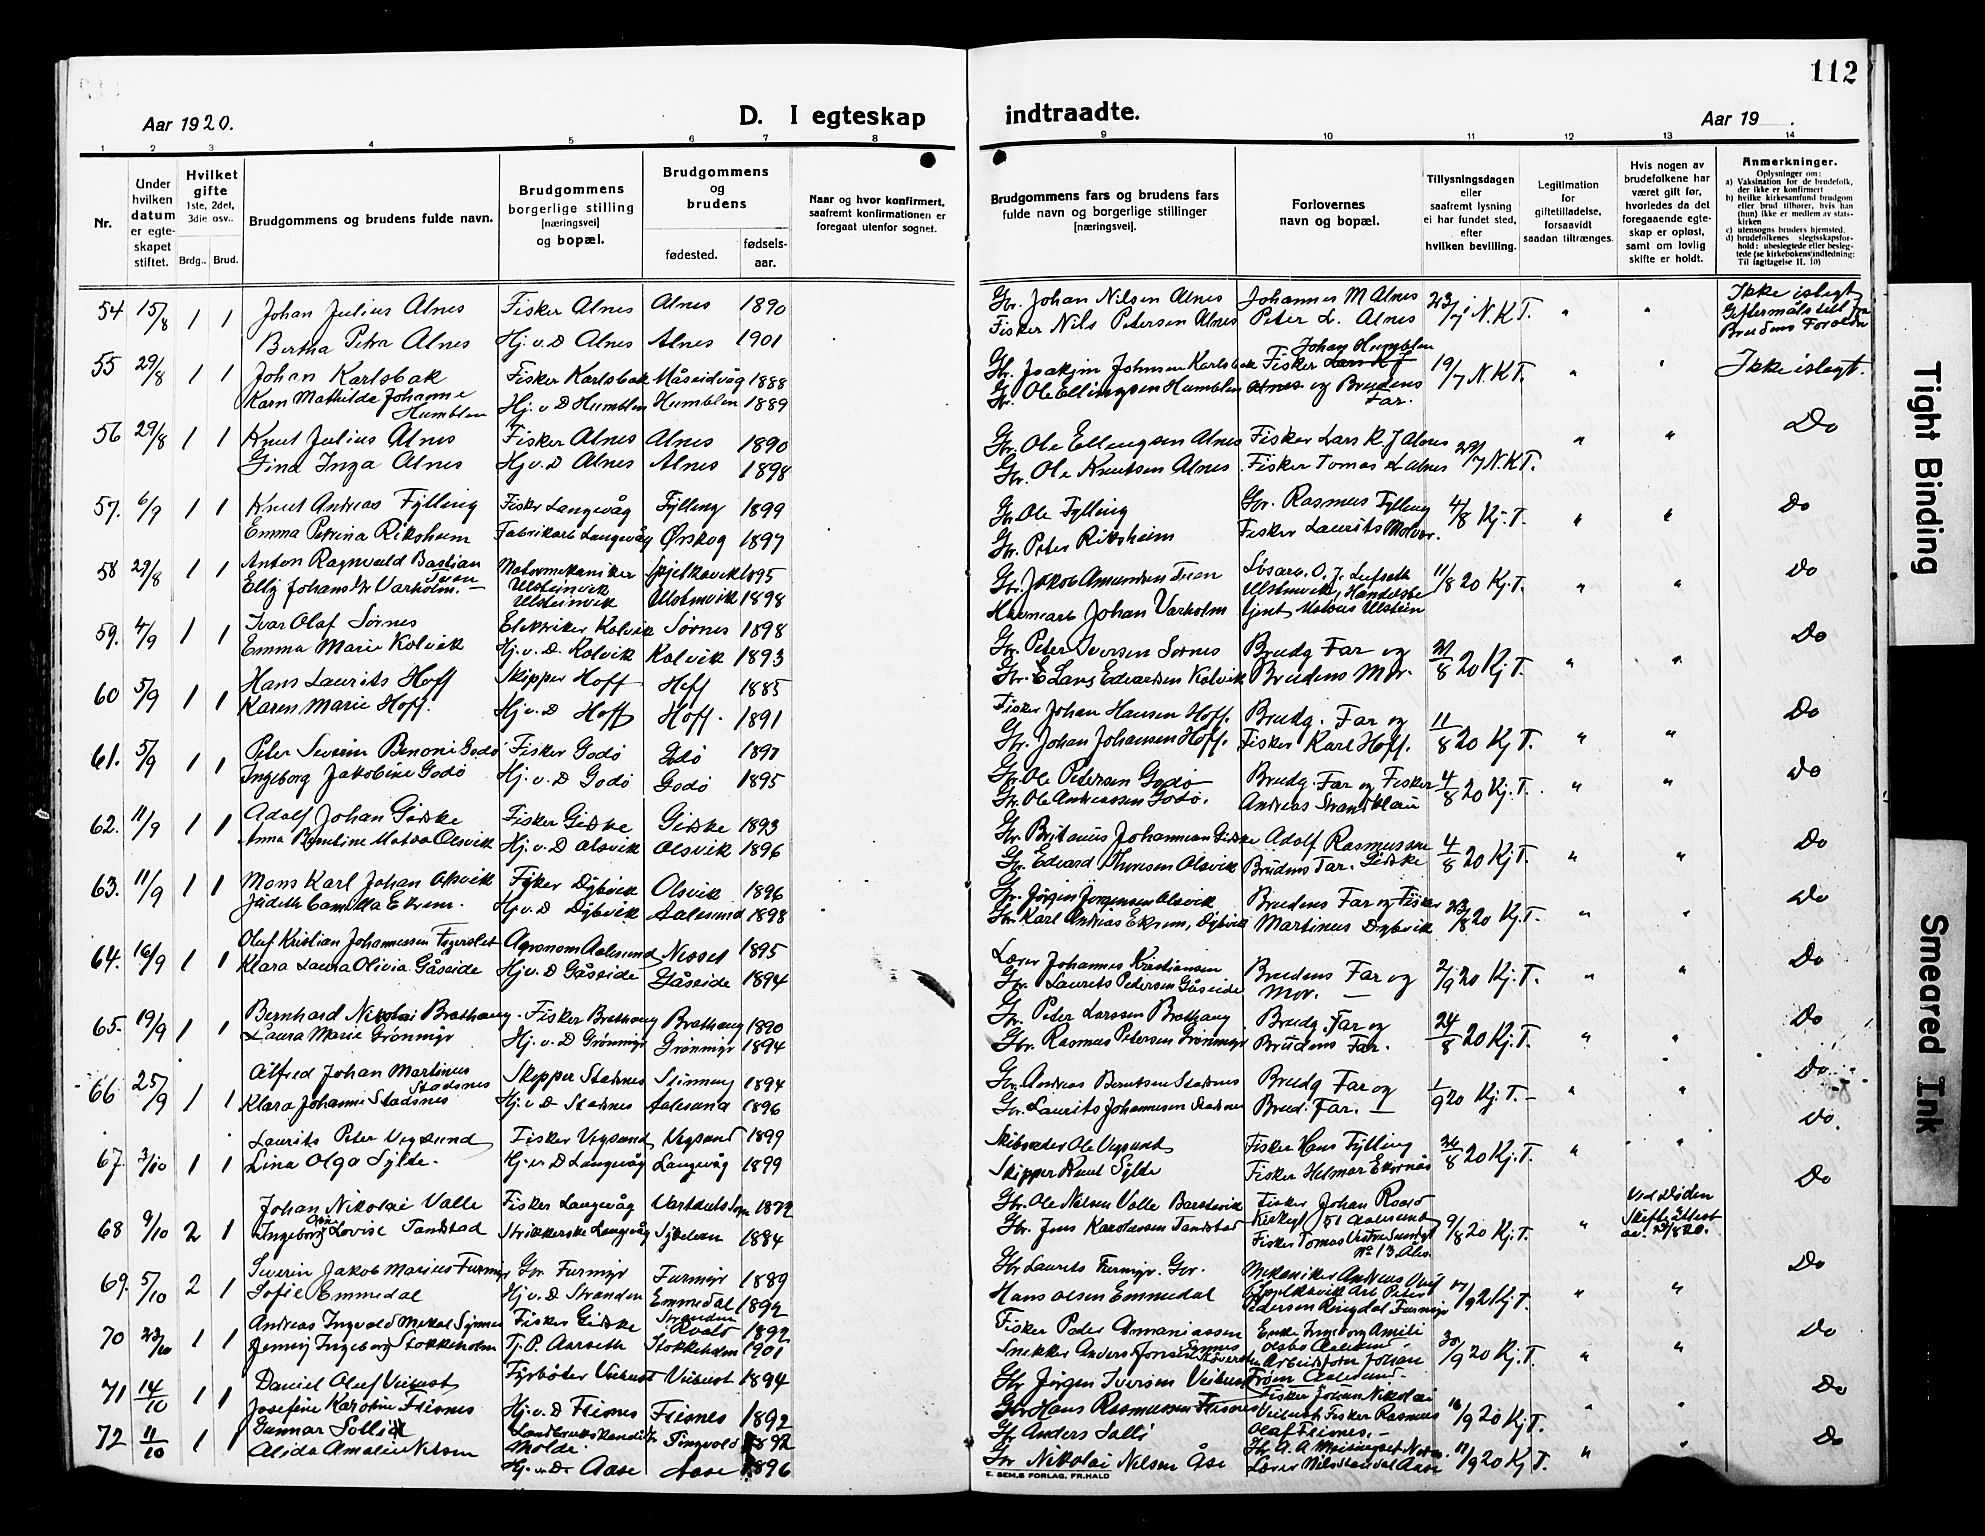 112
Aar 1920.
D. I egteskap indtraadte.
Aar 19 .
1 2 3 4 5 6 7 8 9 10 11 12 13 14
Nr.
Under hvilken datum er egteskapet stiftet.
Hvilket gifte 1ste, 2det, 3die osv..
Brdg.. Brud.
Brudgommens og brudens fulde navn.
Brudgommens borgerlige stilling [næringsvei] og bopæl.
Brudgommens og brudens
fødested.
fødselsaar.
Naar og hvor konfirmert, saafremt konfirmationen er foregaat utenfor sognet.
Brudgommens fars og brudens fars fulde navn og borgerlige stillinger [næringsvei].
Forlovernes navn og bopæl.
Tillysningsdagen eller saafremt lysning ei har fundet sted, efter hvilken bevilling.
Legitimation for giftetilladelse, forsaavidt saadan tiltrænges.
Hvis nogen av brudefolkene har været gift før, hvorledes da det foregaaende egteskap er opløst, samt om lovlig skifte er holdt.
Anmerkninger.
Oplysninger om:
a) Vaksination for de brudefolk, der ikke er konfirmert
b) hvilke kirkesamfund brudgom eller brud tilhører, hvis han (hun) ikke er medlem av statskirken
c) utensogns bruders hjemsted.
d) brudefolkenes slegtsskapsforhold; ubeslegtede eller beslegtede (se kirkebokens indledning: Til iagttagelse II. 10)
54 15/8 1 1 Johan Julius Alnes Fisker Alnes Alnes 1890 Gbr. Johan Nilsen Alnes Johannes M Alnes 23/7 N.K.T. " " Ikke i slegt
Bertha Petra Alnes Hj. v. D Alnes Alnes 1901 Fisker Nils Petersen Alnes Peter L. Alnes Giftermåls till fra Brudens Foreldre
55 29/8 1 1 Johan Karlsbak Fisker Karlsbak Måseidvåg 1888 Gbr. Joakim Johnsen Karlsbak Fisker Johan Humblen 19/7 N.K.T. " " Ikke i slegt.
Karn Mathilde Johanne Humblen Hj. v D Humblen Humblen 1889 Gbr. Ole Ellingsen Humblen og Brudens Far.
56 29/8 1 1 Knut Julius Alnes Fisker Alnes Alnes 1890 Gbr. Ole Ellingsen Alnes Fisker Lars K. J Alnes 29/7 N.K.T. " " Do
Gina Inga Alnes Hj. v. D Alnes Alnes 1898 Gbr. Ole Knutsen Alnes Fisker Tomas L Alnes
57. 6/9 1 1 Knut Andreas Fylling Fisker Langevåg Fylling 1899 Gbr Ole Fylling Gbr. Rasmus Fylling 4/8 Kj. T. " " Do
Emma Petrina Riksheim Fabrikarb Langevåg Ørskog 1897 Gbr. Peter Riksheim Fisker Laurits Molvær.
58 29/8 1 1 Anton Ragnvald Bastian Tuen Motormekaniker Ulsteinvik Spjelkavik 1895 Gbr. Jakob Amundsen Tuen 11/8 20 Kj. T. " " Do
Elly Johansdtr Varholm. Ulsteinvik Ulstenvik 1898 Havnearb Johan Varholm
59. 4/9 1 1 Ivar Olaf Sørnes Elektriker Kolvik Sørnes 1898 Gbr. Peter Iversen Sørnes Brudg Far og 21/8 20 Kj. T. " " Do
Emma Marie Kolvik Hj. v. D. Kolvik Kolvik 1893 Gbr. Lars Edvardsen Kolvik Brudens Mor.
60 5/9 1 1 Hans Laurits Hoff Skipper Hoff Hoff 1885 Fisker Johan Hansen Hoff. Brudg. Far og 11/8 20 Kj T. " " Do
Karen Marie Hoff. Hj. v. D Hoff Hoff. 1891 Gbr. Johan Johansen Hoff. Fisker Karl Hoff.
61. 5/9 1 1 Peter Severin Benoni Godø Fisker Godø Godø 1897 Gbr. Ole Petersen Godø Brudg. Far og Fisker 4/8 20 Kj. T. " " Do
Ingeborg Jakobine Godø Hj. v. D Godø Godø 1895 Gbr. Ole Andreassen Godø. Andreas
62. 11/9 1 1 Adolf Johan Giske Fisker Giske Giske 1893 Gbr. Johannesen Giske Adolf Rasmussen Giske 4/8 20 Kj T. " " Do
Anna Olsvik Hj. v. D Olsvik Olsvik 1896 Gbr. Edvard Olsvik Brudens Far.
63. 11/9 1 1 Mons Karl Johan Olsvik Fisker Dybvik Olsvik 1896 Gbr. Jørgen Jørgensen Olsvik Brudens Far og Fisker 23/8 20 Kj. T. " " Do
Judith Camilla Ekrem. Hj. v. D Dybvik Aalesund 1898 Gbr. Karl Andreas Ekrem, Dybvik Martinus Dybvik
64. 16/9 1 1 Olaf Kristian Johannessen Agronom Aalesund Nesset 1895 Lærer Johannes Kristiansen Brudens Far og 2/9 20 Kj. T. " " Do
Klara Laura Olivia Gåseide Hj. v. D Gåseide Gåseide 1894 Gbr. Laurits Petersen Gåseide Mor.
65. 19/9 1 1 Bernhard Nikolai Brathaug Fisker Brathaug Brathaug 1890 Gbr. Peter Larssen Brathaug Brudg. Far og 24/8 20 Kj. T. " " Do
Laura Marie Grønmyr Hj. v. D Grønmyr Grønmyr 1894 Gbr. Rasmus Petersen Grønmyr Brudens Far.
66 25/9 1 1 Alfred Johan Martinus Stadsnes Skipper Stadsnes 1894 Gbr. Andreas Berntsen Stadsnes Brudg Far og 1/9 20 Kj. T. " " Do
Klara Johanne Stadsnes Hj. v D Stadsnes Aalesund 1896 Gbr. Laurits Johannesen Stadsnes Brud. Far.
67. 3/10 1 1 Laurits Peter Vegsund Fisker Vegsund Vegsund 1899 Ole Vegsund Fisker Hans Fylling 26/8 20 Kj. T. " " Do.
Lina Olga Sylte. Hj. v. D Langevåg Langevåg 1899 Skipper Knut Sylte Fisker Helmar Ekornås
68 9/10 2 1 Johan Nikolai Valle Fisker Langevåg 1872 Gbr. Ole Nilsen Valle Fisker Johan Roald 9/8 20 Kj. T. " Ved Døden Do
Ingeborg Lovise Tandstad Strikkerske Langevåg 1884 Gbr. Jens Karolussen Tandstad Fisker Tomas No 13 Ales.
69. 5/10 2 1 Severin Jakob Marius Furmyr Gbr. Furmyr Furmyr 1889 Gbr Laurits Furmyr. Gbr. Mekaniker Andreas Kj. T. " " Do
Sofie Emmedal Hj. v. D Stranden Emmedal Stranden 1892 Hans Olsen Emmedal Pedersen Ringdal Furmyr
70 23/10 1 1 Andreas Ingvald Mikal Synnes Fisker Giske Roald 1892 Fisker Peder Synnes Enke Ingeborg Amili 30/9 20 Kj. T. " " Do
Jenny Ingeborg Stokkeholm Tj. P. Aarseth Stokkeholm 1901 Snekker Anders Johan
71 14/10 1 1 Daniel Oluf Veibust Fyrbøter Veibust Veibust 1894 Gbr. Jørgen Iversen Veibust Fisker Johan Nikolai 16/9 20 Kj. T. " " Do
Josefine Karoline Flisnes Hj. v. D Flisnes Flisnes 1892 Gbr Hans Rasmussen Flisnes Veibust Fisker Rasmus Olaf Flisnes.
72 11/10 1 1 Gunnar Solli Molde. Tingvold 1892 Gbr. Anders Solli 17/9 20 Kj T. " " Do
Alida Amalie Nilsen Hj. v. D. Aase Aase 1896 Gbr Nikolai Nilsen Åse Lærer Aase
E. SEM,S FORLAG. FR.HALD
Tight Binding
Smeared Ink